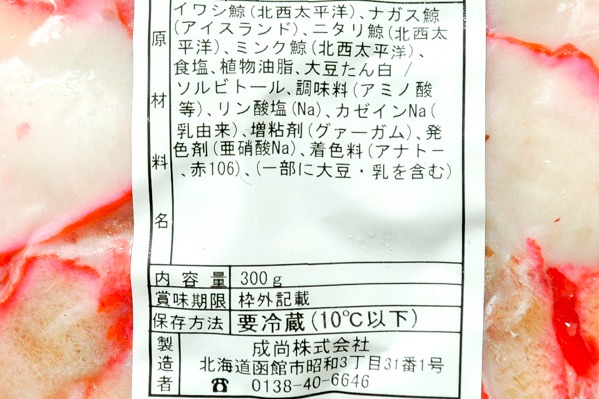 イワシ鯨(北西太平洋)、ナガス鯨
(アイスランド)、ニタリ鯨(北西太平
洋)、ミンク鯨(北西太平洋)、
食塩、植物油脂、大豆たん白/
ソルビトール、調味料(アミノ酸
等)、リン酸塩(Na)、カゼインNa(
乳由来)、増粘剤(グァーガム)、発
色剤(亜硝酸Na)、着色料(アナトー
、赤106)、(一部に大豆・乳を含む)
原材料名
内容量 300g
賞味期限 枠外記載
保存方法 要冷蔵(10℃以下)
製造者
成尚株式会社
北海道函館市昭和3丁目31番1号
☎ 0138-40-6646